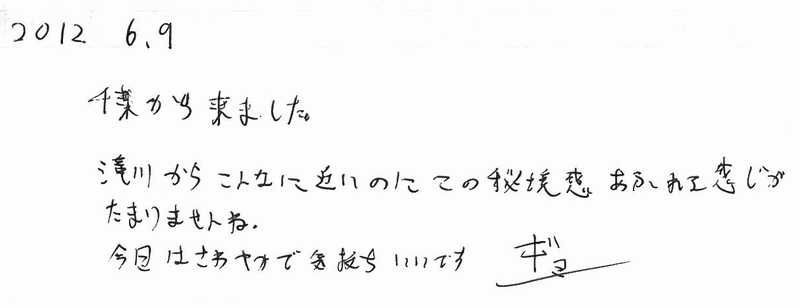 2012 6.9
千葉から来ました。
滝川からこんなに近いのにこの秘境感あふれる感じが
たまりませんね.
今日はさわやかで気持ちいいです ギョ